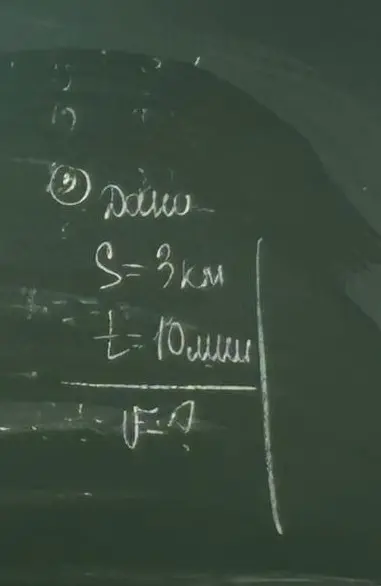 ② Дано
S = 3 км
t = 10 мин
V = ?